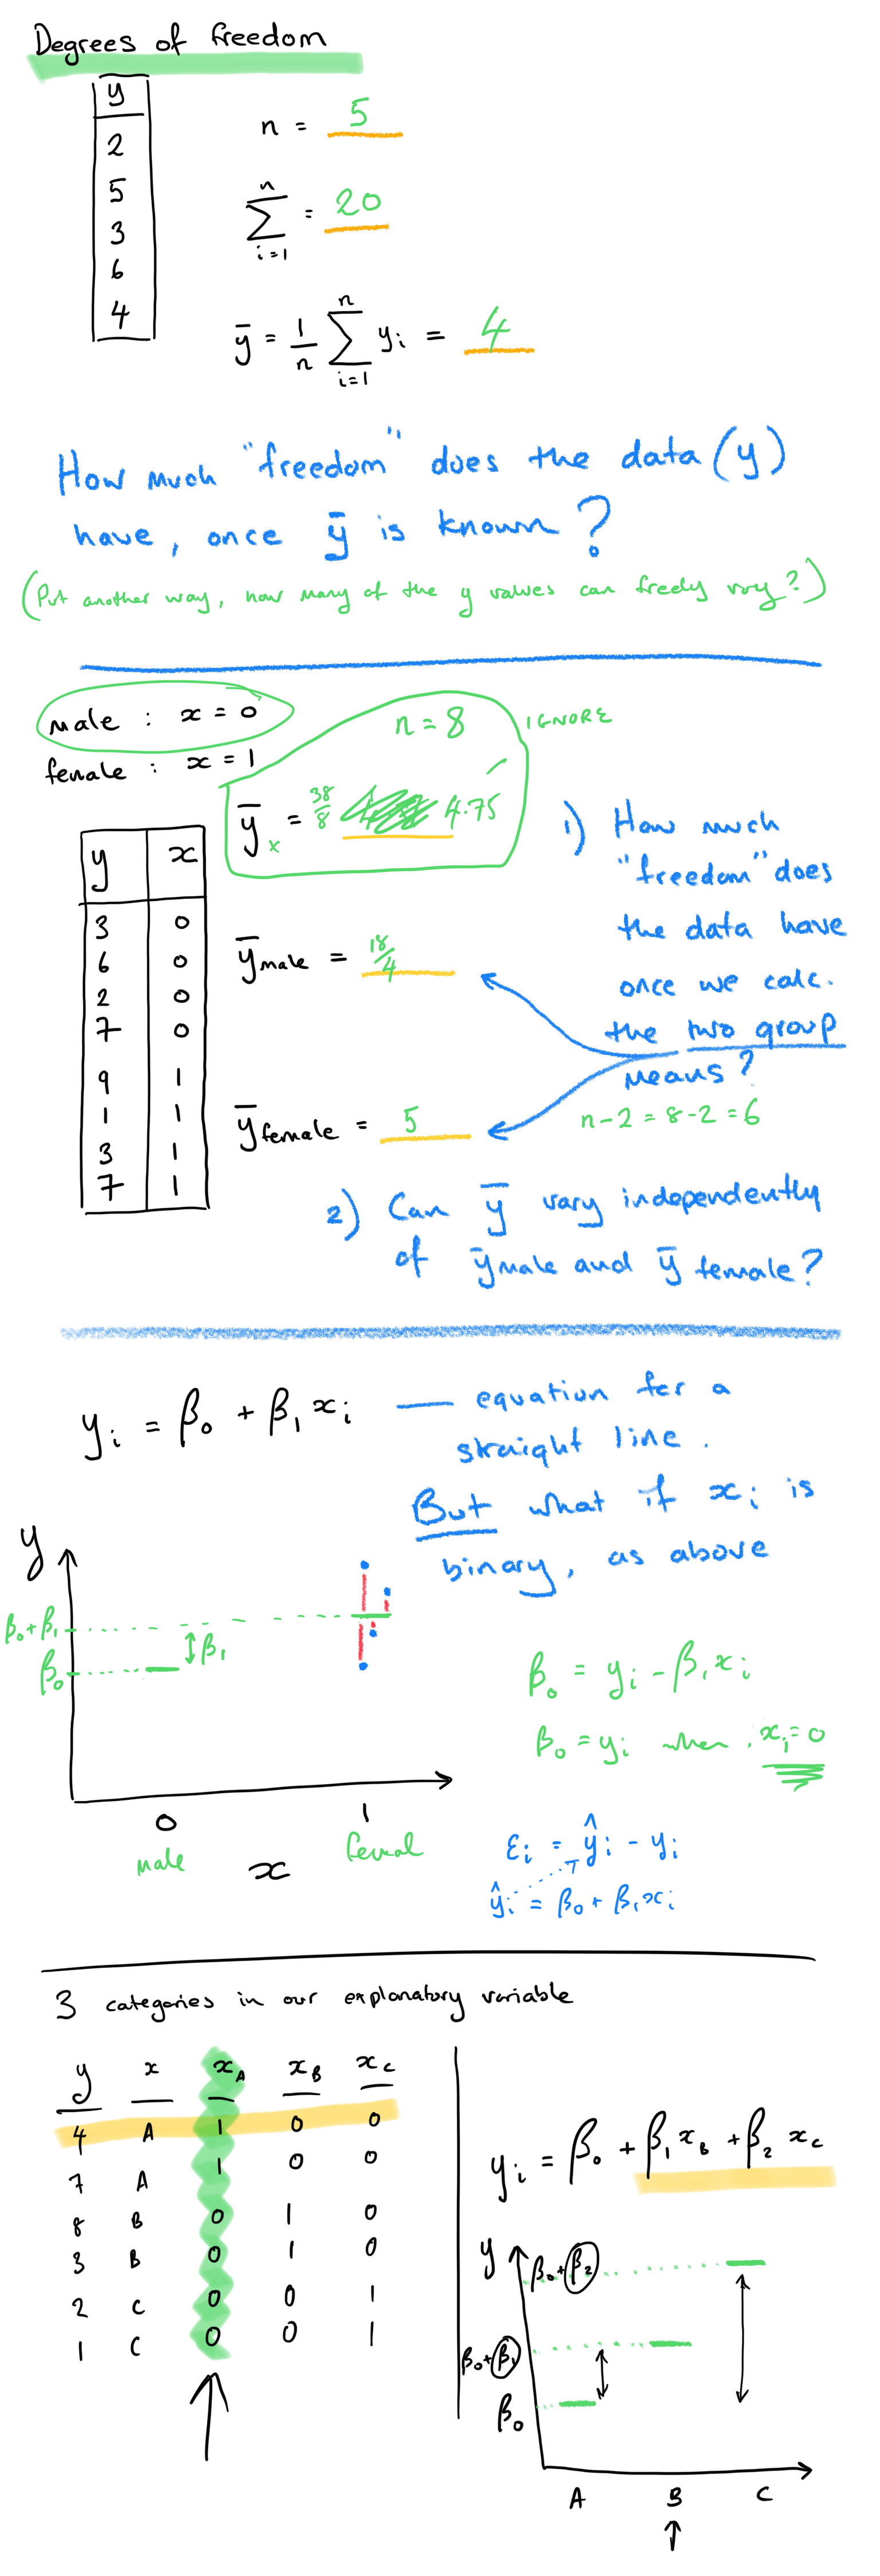 Degrees of freedom
y
2
5
3
6
4
n = 5
n
∑ = 20
i=1
ȳ = 1/n ∑ yᵢ = 4
n
i=1
How much "freedom" does the data (y)
have, once ȳ is known?
(Put another way, how many of the y values can freely vary?)
male : x = 0
female : x = 1
n = 8
IGNORE
ȳₓ = 38/8 4.75
y x
3 0
6 0
2 0
7 0
9 1
1 1
3 1
7 1
ȳ male = 18/4
ȳ female = 5
1) How much
"freedom" does
the data have
once we calc.
the two group
means?
n-2 = 8-2 = 6
2) Can ȳ vary independently
of ȳ male and ȳ female?
yᵢ = β₀ + β₁xᵢ — equation for a
straight line.
But what if xᵢ is
binary, as above
y
β₀+β₁
β₁
β₀
0 1
male femal
x
β₀ = yᵢ - β₁xᵢ
β₀ = yᵢ when xᵢ=0
εᵢ = ŷᵢ - yᵢ
ŷᵢ = β₀ + β₁xᵢ
3 categories in our explanatory variable
y x x_A x_B x_C
4 A 1 0 0
7 A 1 0 0
8 B 0 1 0
3 B 0 1 0
2 C 0 0 1
1 C 0 0 1
yᵢ = β₀ + β₁x_B + β₂x_C
y
β₀+β₂
β₀+β₁
β₀
A B C